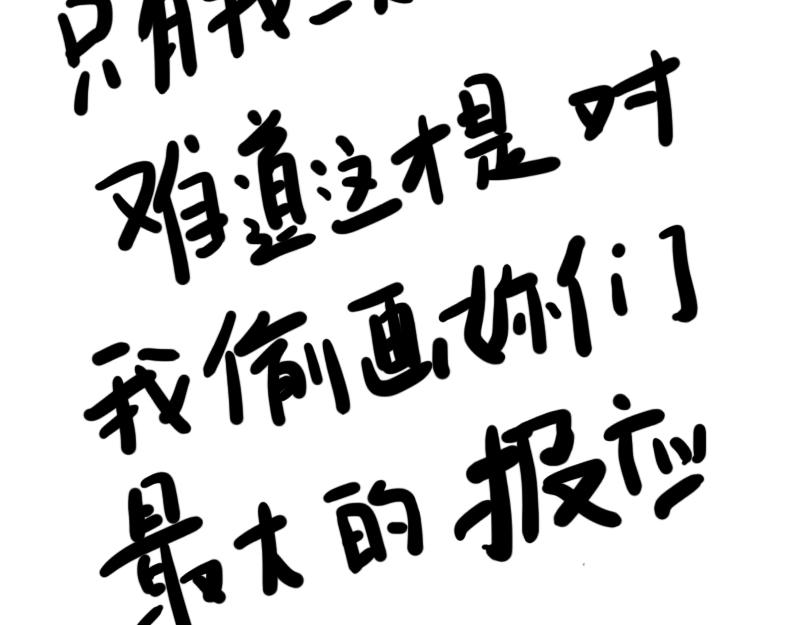 只有我
难道这才是对
我偷画妳们
最大的报应